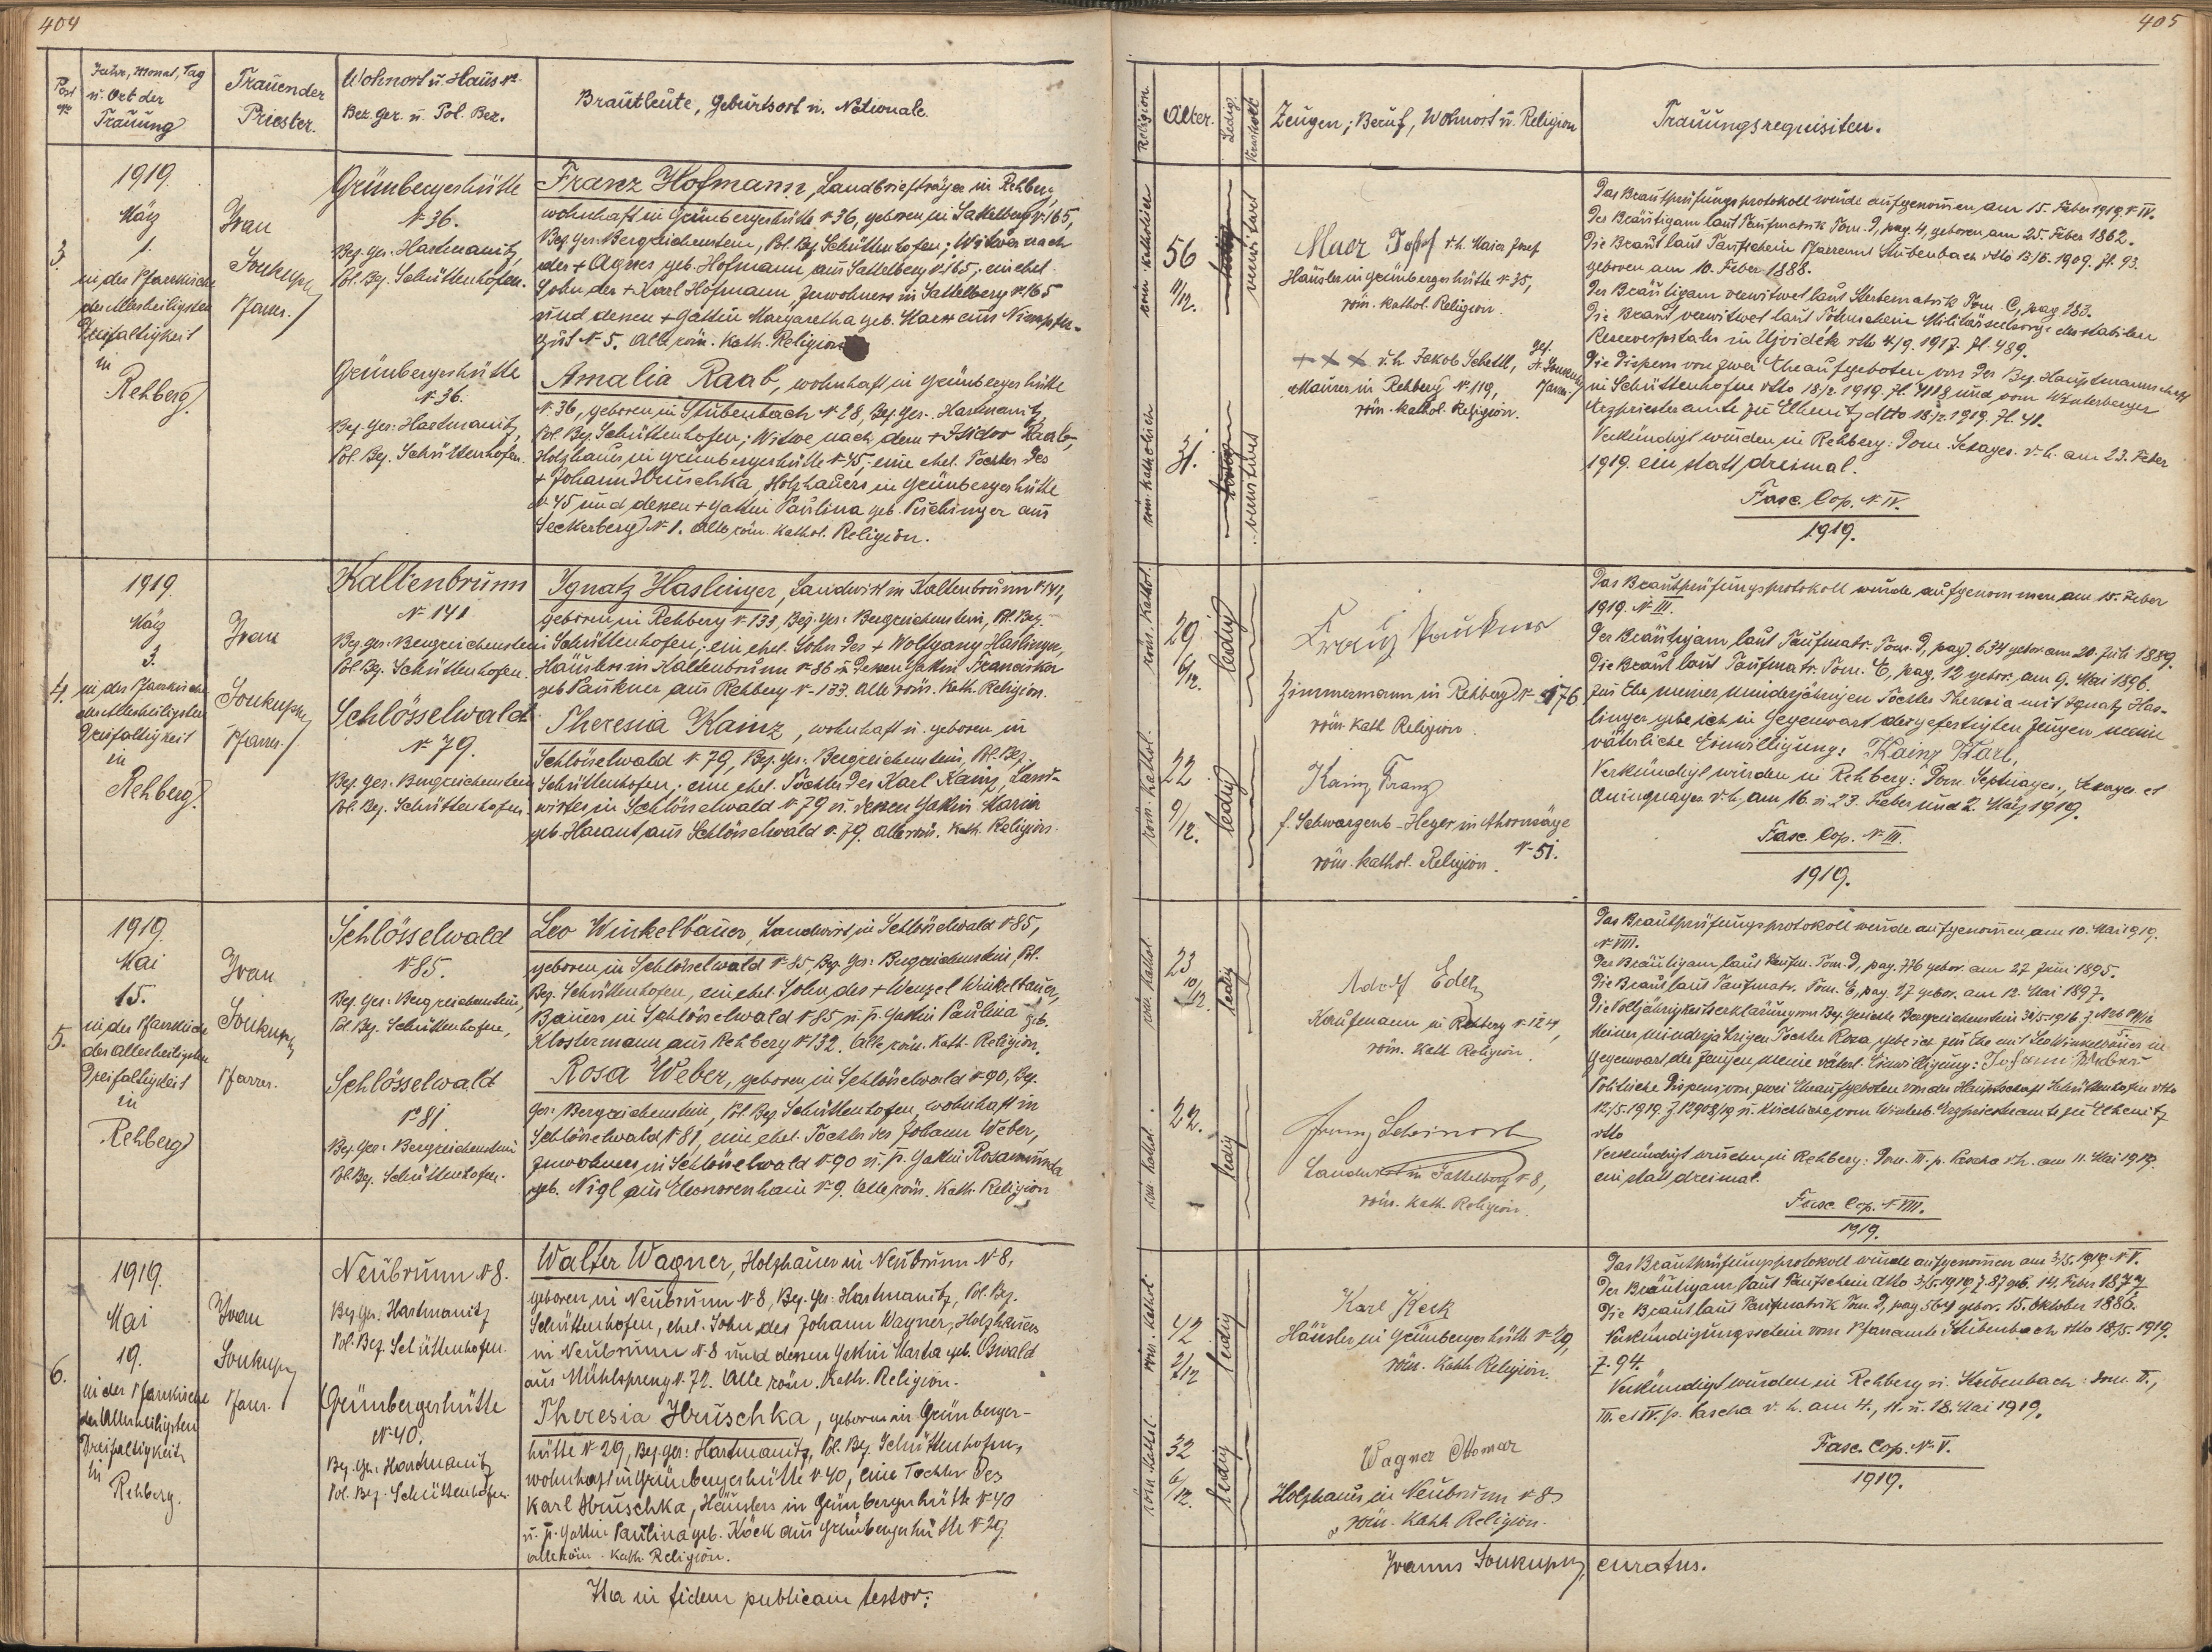 404
Post No
Jahr, Monat, Tag
u. Ort der
Trauung
Trauender
Priester.
Wohnort u. Haus No.
Bez. Ger. u. Pol. Bez.
Brautleute, Geburtsort u. Nationale.
3.
1919.
März
1.
in der Pfarrkirche
der Allerheiligsten
Dreifaltigkeit
in
Rehberg.
Ivan
Soukup
Pfarrer.
Grünbergerhütte
N. 36.
Bez. Ger. Hartmanitz,
Pol. Bez. Schüttenhofen.
Grünbergerhütte
N. 36.
Bez. Ger. Hartmanitz,
Pol. Bez. Schüttenhofen.
Franz Hofmann, Landbriefträger in Rehberg,
wohnhaft in Grünbergerhütte N. 36, geboren in Sattelberg N. 165,
Bez. Ger. Bergreichenstein, Pol. Bez. Schüttenhofen; Witwer nach
der + Agnes geb. Hofmann aus Sattelberg N. 165; ein ehel.
Sohn des + Karl Hofmann, Inwohners in Sattelberg N. 165
und dessen + Gattin Margaretha geb. Maer aus
gut N. 5. Alle röm. kath. Religion
Amalia Raab, wohnhaft in Grünbergerhütte
N. 36, geboren in Stubenbach N. 28, Bez. Ger. Hartmanitz,
Pol. Bez. Schüttenhofen; Witwe nach dem + Isidor Raab,
Holzhauer in Grünbergerhütte N. 45, eine ehel. Tochter des
+ Johann Hruschka, Holzhauers in Grünbergerhütte
N. 45 und dessen + Gattin Paulina geb. Puchinger aus
Seckerberg N. 1. Alle röm. kathol. Religion.
4.
1919.
März
3.
in der Pfarrkirche
der Allerheiligsten
Dreifaltigkeit
in
Rehberg.
Ivan
Soukup
Pfarrer.
Kaltenbrunn
N. 141
Bez. Ger. Bergreichenstein
Pol. Bez. Schüttenhofen.
Schlösselwald
N. 79.
Bez. Ger. Bergreichenstein
Pol. Bez. Schüttenhofen.
Ignatz Haslinger, Landwirt in Kaltenbrunn N. 141,
geboren in Rehberg N. 133, Bez. Ger. Bergreichenstein, Pol. Bez.
Schüttenhofen; ein ehel. Sohn des + Wolfgang Haslinger,
Häuslers in Kaltenbrunn N. 86 u. dessen Gattin Franciska
geb. Paukner aus Rehberg N. 133. Alle röm. Kath. Religion.
Theresia Kainz, wohnhaft u. geboren in
Schlösselwald N. 79, Bez. Ger. Bergreichenstein, Pol. Bez.
Schüttenhofen; eine ehel. Tochter des Karl Kainz, Land-
wirtes in Schlösselwald N. 79 u. dessen Gattin Maria
geb. Harant aus Schlösselwald N. 79. Alle röm. Kath. Religion.
5.
1919.
Mai
15.
in der Pfarrkirche
der Allerheiligsten
Dreifaltigkeit
in
Rehberg
Ivan
Soukup
Pfarrer.
Schlösselwald
N. 85.
Bez. Ger. Bergreichenstein,
Pol. Bez. Schüttenhofen,
Schlösselwald
N. 81.
Bez. Ger. Bergreichenstein
Pol. Bez. Schüttenhofen.
Leo Winkelbauer, Landwirt in Schlösselwald N. 85,
geboren in Schlösselwald N. 85, Bez. Ger. Bergreichenstein, Pol.
Bez. Schüttenhofen, ein ehel. Sohn des + Wenzel Winkelbauer,
Bauers in Schlösselwald N. 85 u. s. Gattin Paulina geb.
Klostermann aus Rehberg N. 132. Alle röm. Kath. Religion.
Rosa Weber, geboren in Schlösselwald N. 90, Bez.
Ger. Bergreichenstein, Pol. Bez. Schüttenhofen, wohnhaft in
Schlösselwald N. 81, eine ehel. Tochter des Johann Weber,
Inwohners in Schlösselwald N. 90 u. s. Gattin Rosamunda
geb. Nigl aus Eleonorenhain N. 9. Alle röm. Kath. Religion
6.
1919.
Mai
19.
in der Pfarrkirche
der Allerheiligsten
Dreifaltigkeit
in
Rehberg.
Ivan
Soukup
Pfarr.
Neubrunn N. 8.
Bez. Ger. Hartmanitz
Pol. Bez. Schüttenhofen.
Grünbergerhütte
N. 40.
Bez. Ger. Hartmanitz
Pol. Bez. Schüttenhofen.
Walter Wagner, Holzhauer in Neubrunn N. 8,
geboren in Neubrunn N. 8, Bez. Ger. Hartmanitz, Pol. Bez.
Schüttenhofen, ehel. Sohn des Johann Wagner, Holzhauers
in Neubrunn N. 8 und dessen Gattin Martha geb. Oswald
aus Mühlspreng N. 72. Alle röm. Kath. Religion.
Theresia Hruschka, geboren in Grünberger-
hütte N. 29, Bez. Ger. Hartmanitz, Pol. Bez. Schüttenhofen,
wohnhaft in Grünbergerhütte N. 40, eine Tochter des
Karl Hruschka, Häuslers in Grünbergerhütte N. 40
u. s. Gattin Paulina geb. Köck aus Grünbergerhütte N. 29
alle röm. Kath. Religion.
Ita in fidem publicam testor:
405
Religion.
Alter.
Ledig.
Verwitwet
Zeugen; Beruf, Wohnort u. Religion
Trauungsrequisiten.
röm. katholisch
56
11/12.
verwitwet
röm. katholisch
31.
verwitwet
Maer Josef d.h. Maier Josef
Häusler in Grünbergerhütte N. 35,
röm. kathol. Religion.
+ + + d.h. Jakob Schettl,
Maurer in Rehberg N. 119,
röm. kathol. Religion.
Das Brautprüfungsprotokoll wurde aufgenommen am 15. Feber 1919 N. IV.
Der Bräutigam laut Taufmatrik Tom. D, pag. 4, geboren am 25. Feber 1862.
Die Braut laut Taufschein Pfarramt Stubenbach dtto 13/6. 1909. Zl. 93.
geboren am 10. Feber 1888.
Der Bräutigam verwitwet laut Sterbematrik Tom. C, pag. 283.
Die Braut verwitwet laut Totenschein Militärseelsorge des stabilen
Reservespitales in Ujvidék dtto 4/9. 1917. Zl. 489.
Die Dispens von zwei Eheaufgeboten von der Bez. Hauptmannschaft
in Schüttenhofen dtto 18/2. 1919. Zl. 4118 und vom Winterberger
Erzpriesteramte zu Elhenitz dtto 18/2. 1919. Zl. 41.
Verkündigt wurden in Rehberg: Dom. Sexages. d.h. am 23. Feber
1919. ein statt dreimal.
Fasc. Cop. N. IV.
1919.
röm. kathol.
29
6/12.
ledig
röm. kathol.
22
9/12.
ledig
Franz Paukner
Zimmermann in Rehberg N. 176
röm. kath. Religion.
Kainz Franz
f. Schwarzenb. Heger in Ahornsäge
N. 51.
röm. kathol. Religion.
Das Brautprüfungsprotokoll wurde aufgenommen am 15. Feber
1919. N. III.
Der Bräutigam laut Taufmatr. Tom. D, pag. 634 gebor. am 20. Juli 1889.
Die Braut laut Taufmatr. Tom. E, pag. 12 gebor. am 9. Mai 1896.
Zur Ehe meiner minderjährigen Tochter Theresia mit Ignatz Has-
linger gebe ich in Gegenwart der gefertigten Zeugen meine
väterliche Einwilligung: Kainz Karl,
Verkündigt wurden in Rehberg: Dom. Septuages., Sexages. et
Quinquages. d.h. am 16. u. 23. Feber und 2. März 1919.
Fasc. Cop. N. III.
1919.
röm. kathol.
23
10/12.
ledig
röm. kathol.
22.
ledig
Adolf Eder
Kaufmann in Rehberg N. 124,
röm. kath. Religion.
Landwirt in Sattelberg N. 8,
röm. kath. Religion.
Das Brautprüfungsprotokoll wurde aufgenommen am 10. Mai 1919.
N. VIII.
Der Bräutigam laut Taufm. Tom. D, pag. 776 gebor. am 27. Juni 1895.
Die Braut laut Taufmatr. Tom. E, pag. 27 gebor. am 12. Mai 1897.
Die Volljährigkeitserklärung vom Bez. Gerichte Bergreichenstein
Meiner minderjährigen Tochter Rosa, gebe ich zur Ehe mit Leo Winkelbauer in
Gegenwart der Zeugen meine väterl. Einwilligung: Johann Weber
Politische Dispens von zwei Eheaufgeboten von der Hauptmannschaft Schüttenhofen dtto
12/5. 1919. Z. 12908/19 u. kirchliche vom Winterb. Erzpriesteramte zu Elhenitz
dtto
Verkündigt wurden in Rehberg: Dom. III. p. Pascha d.h. am 11. Mai 1919.
ein statt dreimal.
Fasc. Cop. N. VIII.
1919.
röm. kathol.
42
2/12
ledig
röm. kathol.
32
6/12.
ledig
Karl Keck
Häusler in Grünbergerhütte N. 29,
röm. kath. Religion.
Wagner Ottomar
Holzhauer in Neubrunn N. 8
röm. kath. Religion.
Das Brautprüfungsprotokoll wurde aufgenommen am 3/5. 1919 N. V.
Der Bräutigam laut Taufschein dtto 3/5. 1919 Z. 87 geb. 14. Feber 1877
Die Braut laut Taufmatrik Tom. D, pag. 564 gebor. 15. Oktober 1886.
Verkündigungsschein vom Pfarramte Stubenbach dtto 18/5. 1919.
Z. 94.
Verkündigt wurden in Rehberg u. Stubenbach: Dom. II.,
III. et IV. p. Pascha d.h. am 4., 11. u. 18. Mai 1919.
Fasc. Cop. N. V.
1919.
Ivanus Soukup, curatus.